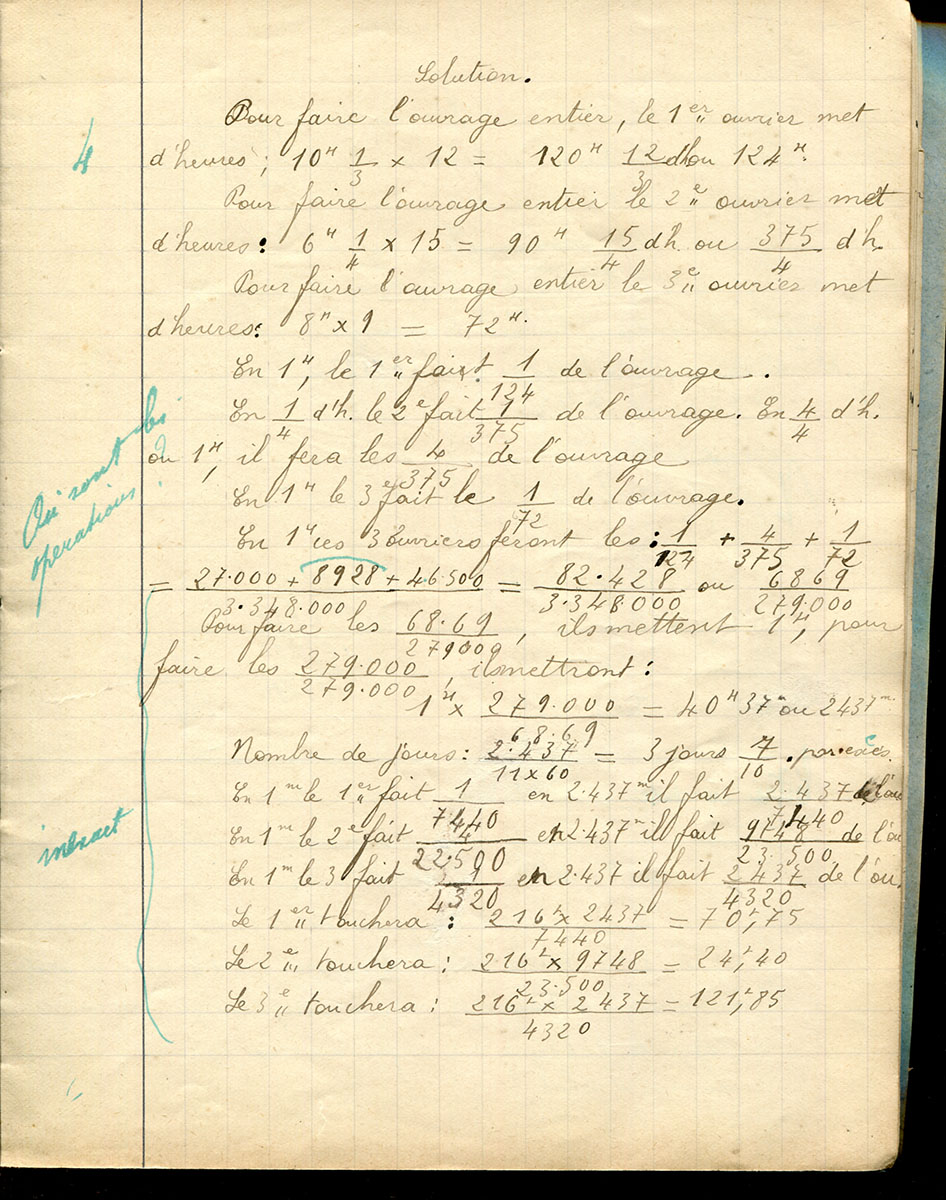 Solution.
Pour faire l'ouvrage entier, le 1er ouvrier met
4
d'heures ; 10H 1/3 × 12 = 120H 12/3 dh ou 124H.
Pour faire l'ouvrage entier le 2e ouvrier met
d'heures : 6H 1/4 × 15 = 90H 15/4 dh. ou 375/4 d'h.
Pour faire l'ouvrage entier le 3e ouvrier met
d'heures : 8H × 9 = 72H.
En 1H, le 1er fait 1/124 de l'ouvrage.
En 1/4 d'h. le 2e fait 1/375 de l'ouvrage. En 4/4 d'h.
ou 1H, il fera les 4/375 de l'ouvrage
Où sont les
opérations ?
En 1H le 3e fait le 1/72 de l'ouvrage.
En 1H les 3 ouvriers feront les : 1/124 + 4/375 + 1/72
= 27.000 + 8928 + 46.500/3.348.000 = 82.428/3.348.000 ou 6869/279.000
Pour faire les 68.69/279000, ils mettent 1H, pour
faire les 279.000/279.000, ils mettront :
1H × 279.000/68.69 = 40H 37m ou 2437m.
Nombre de jours : 2.437/11×60 = 3 jours 7/10 . par excès.
En 1m le 1er fait 1/7440 en 2.437m il fait 2.437/7440 de l'ou
En 1m le 2e fait 4/22.500 en 2.437m il fait 9748/23.500 de l'o
inexact
En 1m le 3 fait 1/4320 en 2.437 il fait 2437/4320 de l'ou.
Le 1er touchera : 216f × 2437/7440 = 70f,75
Le 2e touchera : 216f × 9748/23.500 = 24f,40
Le 3e touchera : 216f × 2437/4320 = 121f,85